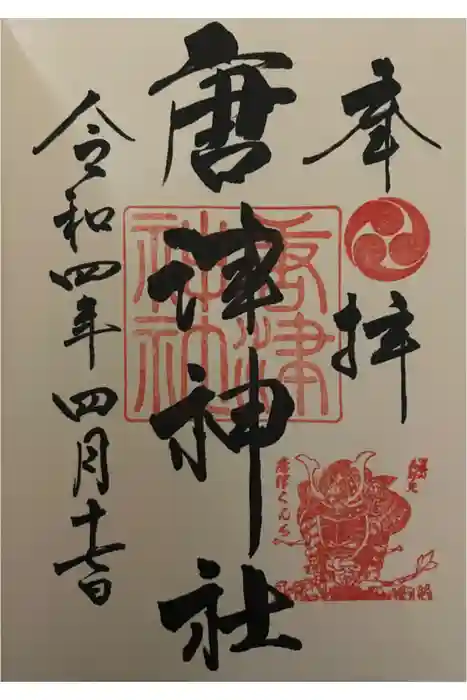 奉拝
唐津神社
令和四年四月十七日
唐津神社
唐津くんち